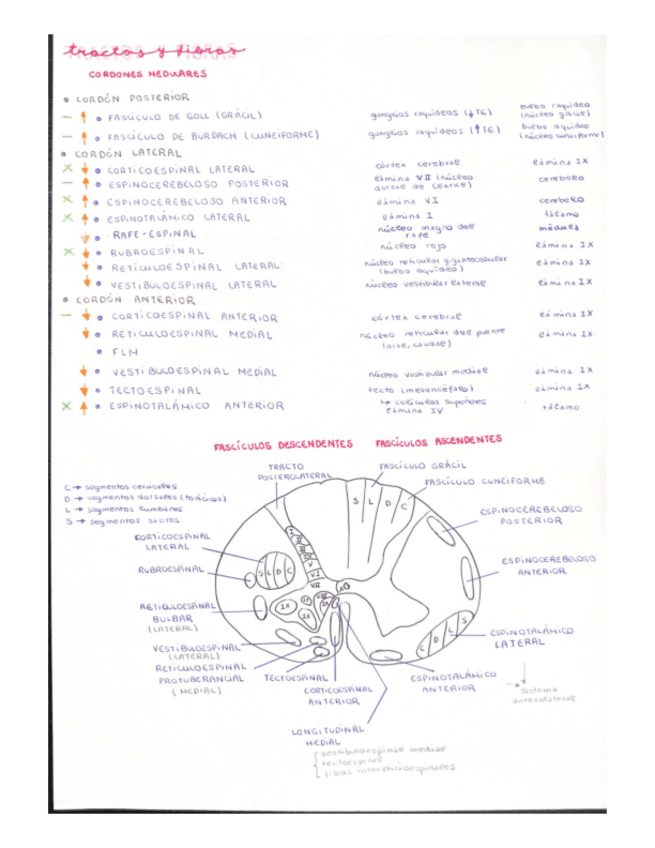 tractos y fibras
CORDONES MEDULARES
• CORDÓN POSTERIOR
– ↑ • FASCÍCULO DE GOLL (GRÁCIL) ganglios raquídeos (↓T6) bulbo raquídeo (núcleo grácil)
– ↑ • FASCÍCULO DE BURDACH (CUNEIFORME) ganglios raquídeos (↑T6) bulbo raquídeo (núcleo cuneiforme)
• CORDÓN LATERAL
X ↓ • CORTICOESPINAL LATERAL córtex cerebral lámina IX
– ↑ • ESPINOCEREBELOSO POSTERIOR lámina VII (núcleo dorsal de Clarke) cerebelo
X ↑ • ESPINOCEREBELOSO ANTERIOR lámina VI cerebelo
X ↑ • ESPINOTALÁMICO LATERAL lámina I tálamo
↓ • RAFE-ESPINAL núcleo magno del rafe médula
X ↓ • RUBROESPINAL núcleo rojo lámina IX
↓ • RETICULOESPINAL LATERAL núcleo reticular gigantocelular lámina IX
↓ • VESTIBULOESPINAL LATERAL núcleo vestibular lateral lámina IX
• CORDÓN ANTERIOR
– ↓ • CORTICOESPINAL ANTERIOR córtex cerebral lámina IX
↓ • RETICULOESPINAL MEDIAL núcleo reticular del puente (oral, caudal) lámina IX
• FLM
↓ • VESTIBULOESPINAL MEDIAL núcleo vestibular medial lámina IX
↓ • TECTOESPINAL tecto (mesencéfalo) lámina IX
↳ colículos superiores
X ↑ • ESPINOTALÁMICO ANTERIOR lámina IV tálamo
FASCÍCULOS DESCENDENTES FASCÍCULOS ASCENDENTES
TRACTO POSTEROLATERAL
FASCÍCULO GRÁCIL
FASCÍCULO CUNEIFORME
C → segmentos cervicales
D → segmentos dorsales (torácicos)
L → segmentos lumbares
S → segmentos sacros
S L D C
ESPINOCEREBELOSO
POSTERIOR
CORTICOESPINAL
LATERAL
RUBROESPINAL
S L D C
I
II
III
IV
V
VI
VII
VIII
IX
IX
IX
X
ESPINOCEREBELOSO
ANTERIOR
RETICULOESPINAL
BULBAR
(LATERAL)
C D L S
ESPINOTALÁMICO
LATERAL
VESTIBULOESPINAL
(LATERAL)
RETICULOESPINAL
PROTUBERANCIAL
(MEDIAL)
TECTOESPINAL
CORTICOESPINAL
ANTERIOR
ESPINOTALÁMICO
ANTERIOR
Sistema
anterolateral
LONGITUDINAL
MEDIAL
vestibuloespinal medial
tectoespinal
fibras intersticioespinales